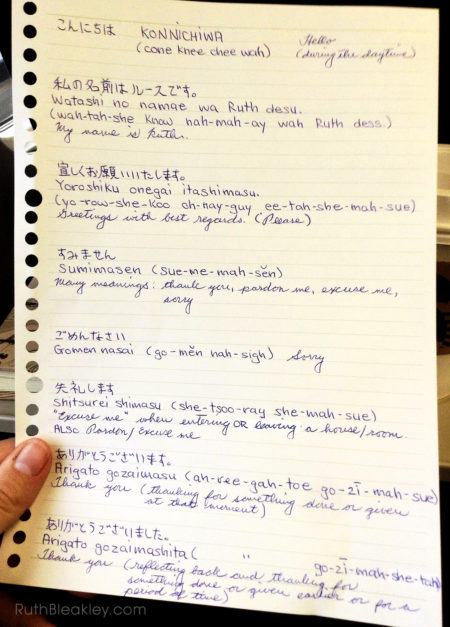 こんにちは KONNICHIWA Hello
(cone knee chee wah) (during the daytime)
私の名前はルースです。
Watashi no namae wa Ruth desu.
(wah-tah-she know nah-mah-ay wah Ruth dess.)
My name is Ruth.
宜しくお願いいたします。
Yoroshiku onegai itashimasu.
(yo-row-she-koo oh-nay-guy ee-tah-she-mah-sue)
Greetings with best regards. (Please)
すみません
Sumimasen (sue-me-mah-sĕn)
Many meanings: thank you, pardon me, excuse me,
sorry
ごめんなさい
Gomen nasai (go-mĕn nah-sigh) Sorry
失礼します
Shitsurei shimasu (she-tsoo-ray she-mah-sue)
"Excuse me" when entering OR leaving a house/room.
ALSO Pardon/Excuse me
ありがとうございます。
Arigato gozaimasu (ah-ree-gah-toe go-zī-mah-sue)
Thank you (thanking for something done or given
at that moment)
ありがとうございました。
Arigato gozaimashita ( " go-zī-mah-she-tah)
Thank you (reflecting back and thanking for
something done or given earlier or for a
period of time)
RuthBleakley.com